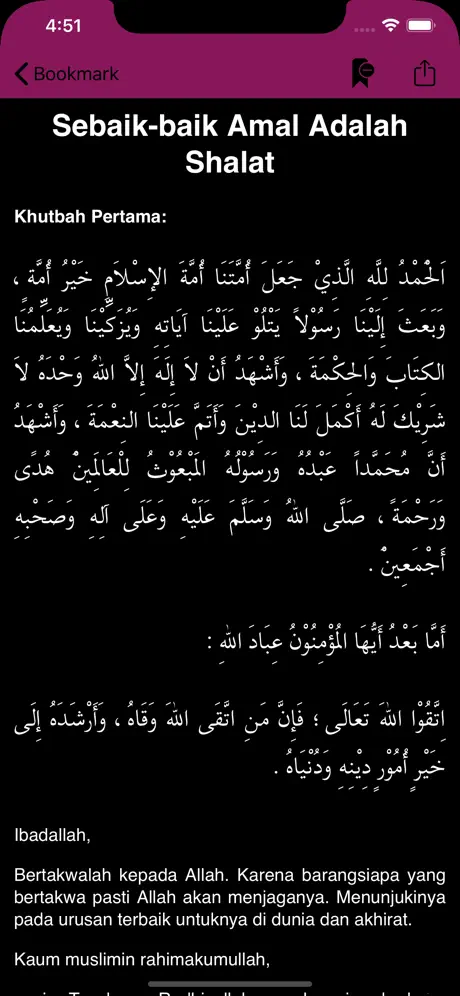 4:51
Bookmark
Sebaik-baik Amal Adalah
Shalat
Khutbah Pertama:
اَلْحَمْدُ لِلَّهِ الَّذِيْ جَعَلَ أُمَّتَنَا أُمَّةَ الإِسْلاَمِ خَيْرُ أُمَّةٍ ،
وَبَعَثَ إِلَيْنَا رَسُوْلاً يَتْلُوْ عَلَيْنَا آيَاتِهِ وَيُزَكِّيْنَا وَيُعَلِّمُنَا
الكِتَابِ وَالحِكْمَةَ ، وَأَشْهَدُ أَنْ لاَ إِلَهَ إِلاَّ اللهُ وَحْدَهُ لاَ
شَرِيْكَ لَهُ أَكْمَلَ لَنَا الدِيْنَ وَأَتَمَّ عَلَيْنَا النِعْمَةَ ، وَأَشْهَدُ
أَنَّ مُحَمَّداً عَبْدُهُ وَرَسُوْلُهُ المَبْعُوْثُ لِلْعَالَمِيْنَ هُدًى
وَرَحْمَةً ، صَلَّى اللهُ وَسَلَّمَ عَلَيْهِ وَعَلَى آلِهِ وَصَحْبِهِ
أَجْمَعِيْنَ .
أَمَّا بَعْدُ أَيُّهَا المُؤْمِنُوْنُ عِبَادَ اللهِ :
اِتَّقُوْا اللهَ تَعَالَى ؛ فَإِنَّ مَنِ اتَّقَى اللهَ وَقَاهُ ، وَأَرْشَدَهُ إِلَى
خَيْرٍ أُمُوْرٍ دِيْنِهِ وَدُنْيَاهُ .
Ibadallah,
Bertakwalah kepada Allah. Karena barangsiapa yang
bertakwa pasti Allah akan menjaganya. Menunjukinya
pada urusan terbaik untuknya di dunia dan akhirat.
Kaum muslimin rahimakumullah,